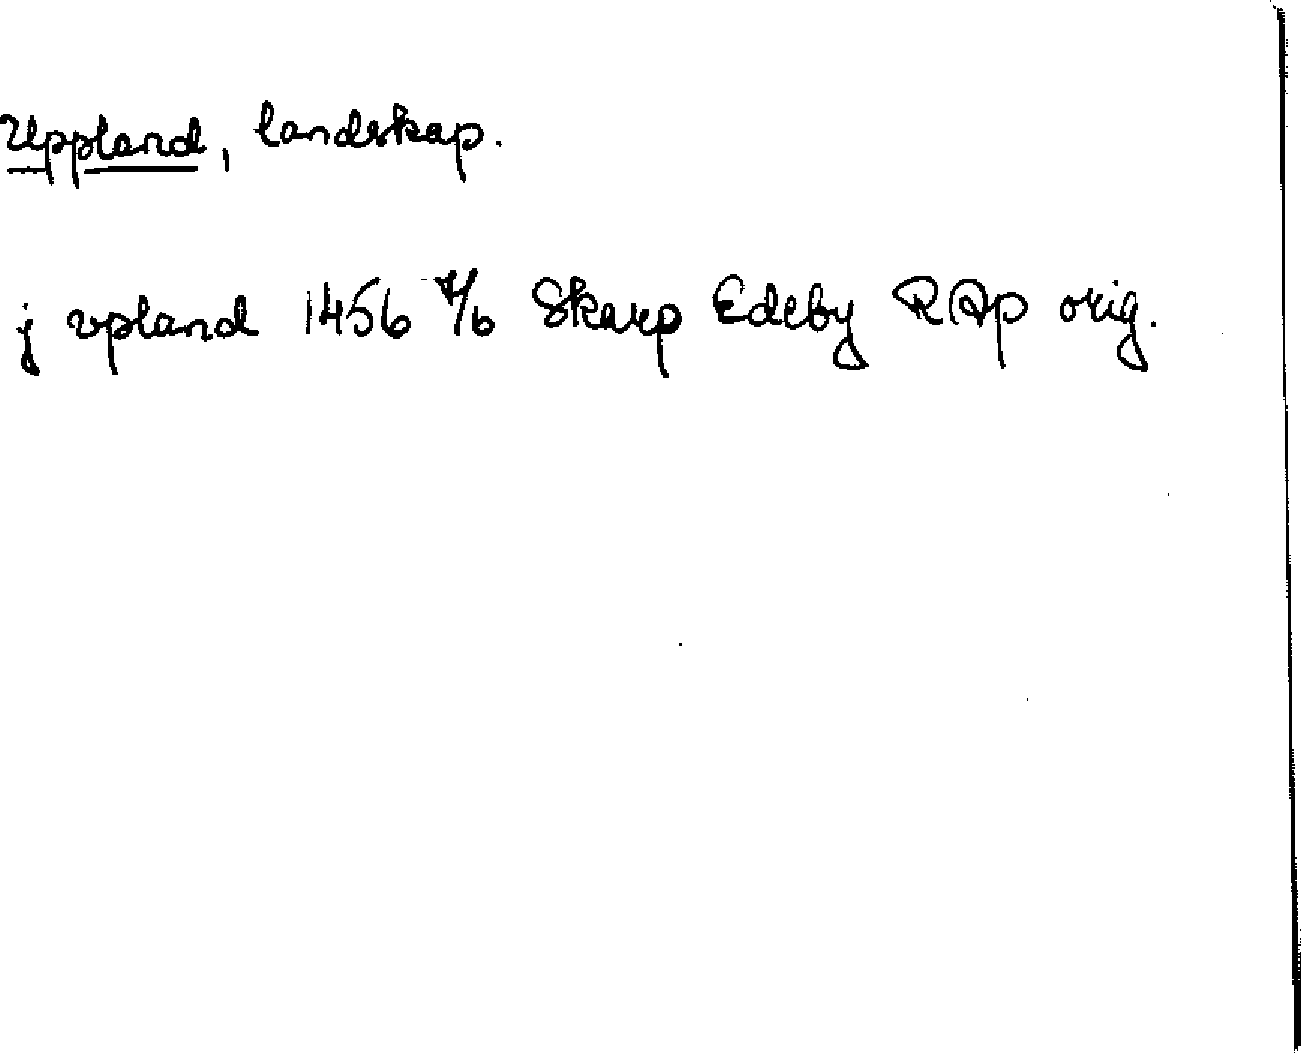 Uppland, landskap.
j vpland 1456 4/6 Skarp Edeby RAp orig.